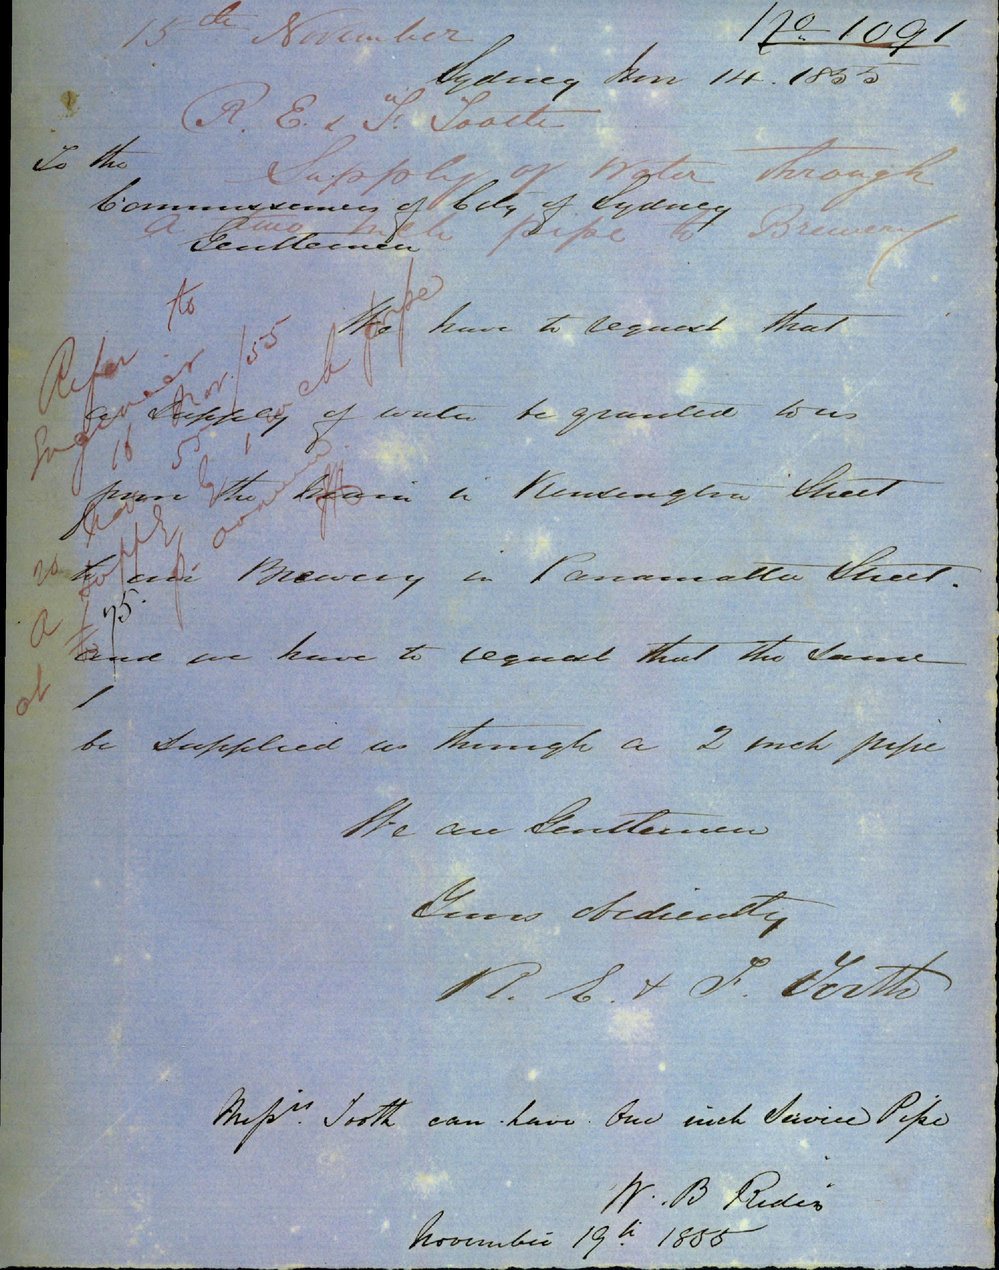 No 1091
15th November
Sydney Nov 14. 1855
R. E. & F. Tooth
To the
Supply of Water through
Commissioners of City of Sydney
a two inch pipe to Brewery
Gentlemen
We have to request that
a supply of water be granted to us
from the Main in Kensington Street
to our Brewery in Parramatta Street.
and we have to request that the same
be supplied us through a 2 inch pipe
We are Gentlemen
Yours obediently
R. E. & F. Tooth
Refer to
Engineer
16 Nov. /55
to have
a supply by 1 inch pipe
at £75. p annum.
75.
Messrs. Tooth can have One inch Service Pipe
W. B. Rider
November 19th 1855